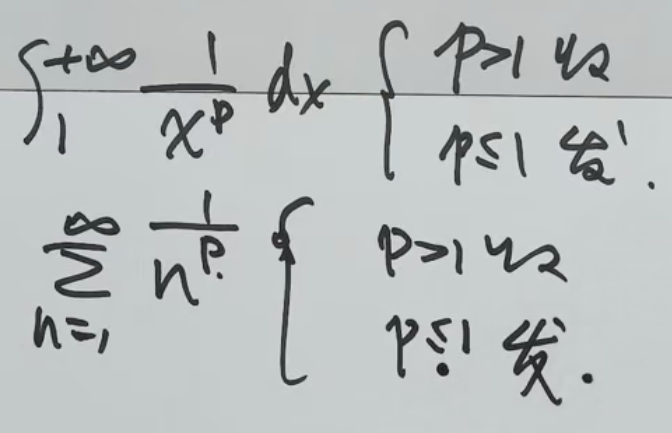 ∫₁^{+∞} 1/x^p dx { p>1 收
p≤1 发.
∑_{n=1}^{∞} 1/n^p { p>1 收
p≤1 发.